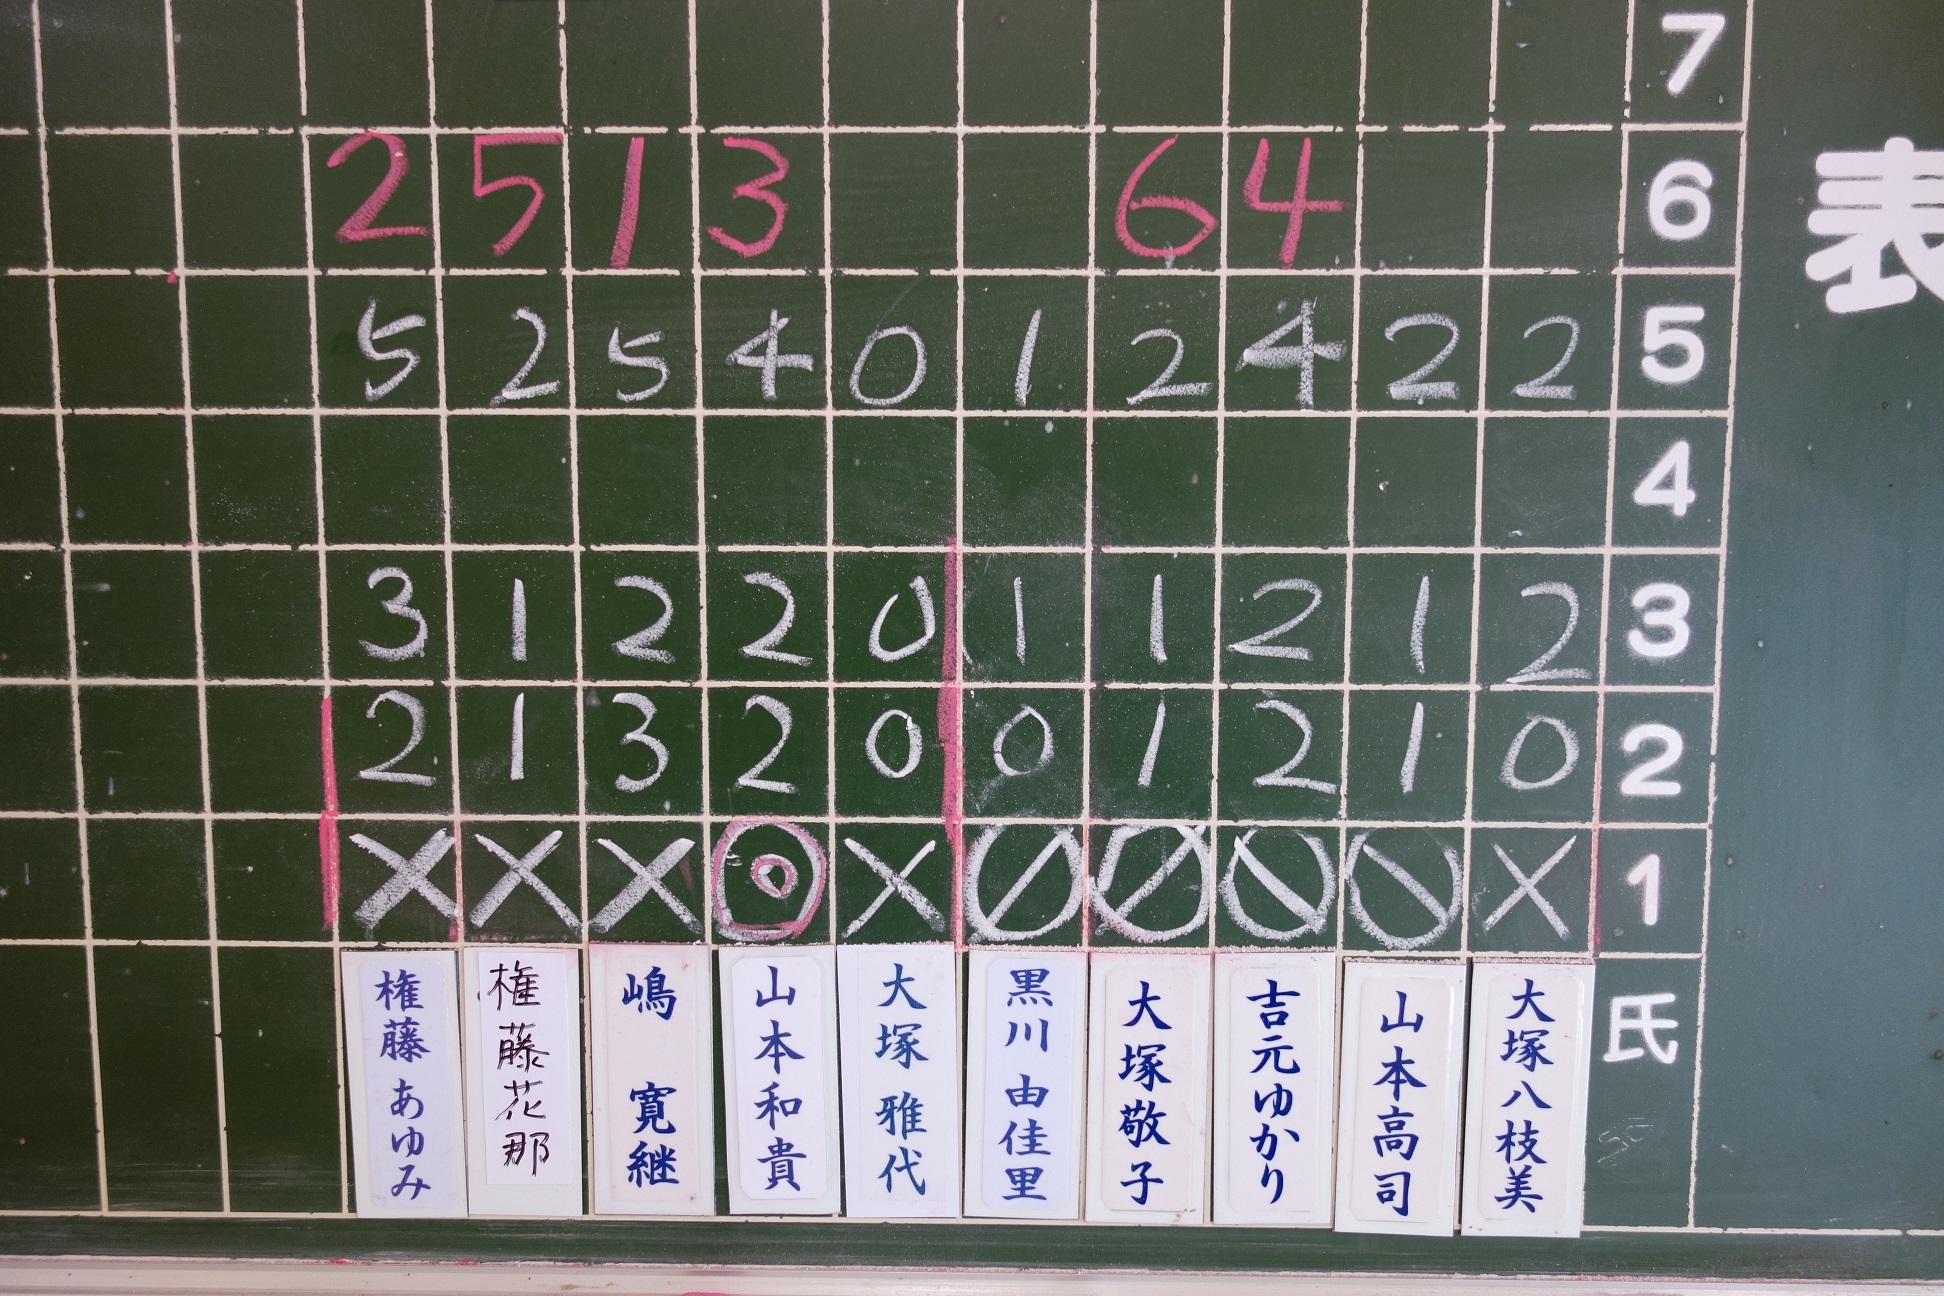 表
7
2 5 1 3 6 4 6
5 2 5 4 0 1 2 4 2 2 5
4
3 1 2 2 0 1 1 2 1 2 3
2 1 3 2 0 0 1 2 1 0 2
× × × ◎ × ⊘ ⊘ ⦸ ⦸ × 1
氏
大塚八枝美
山本高司
吉元ゆかり
大塚敬子
黒川由佳里
大塚雅代
山本和貴
嶋寛継
権藤花那
権藤あゆみ